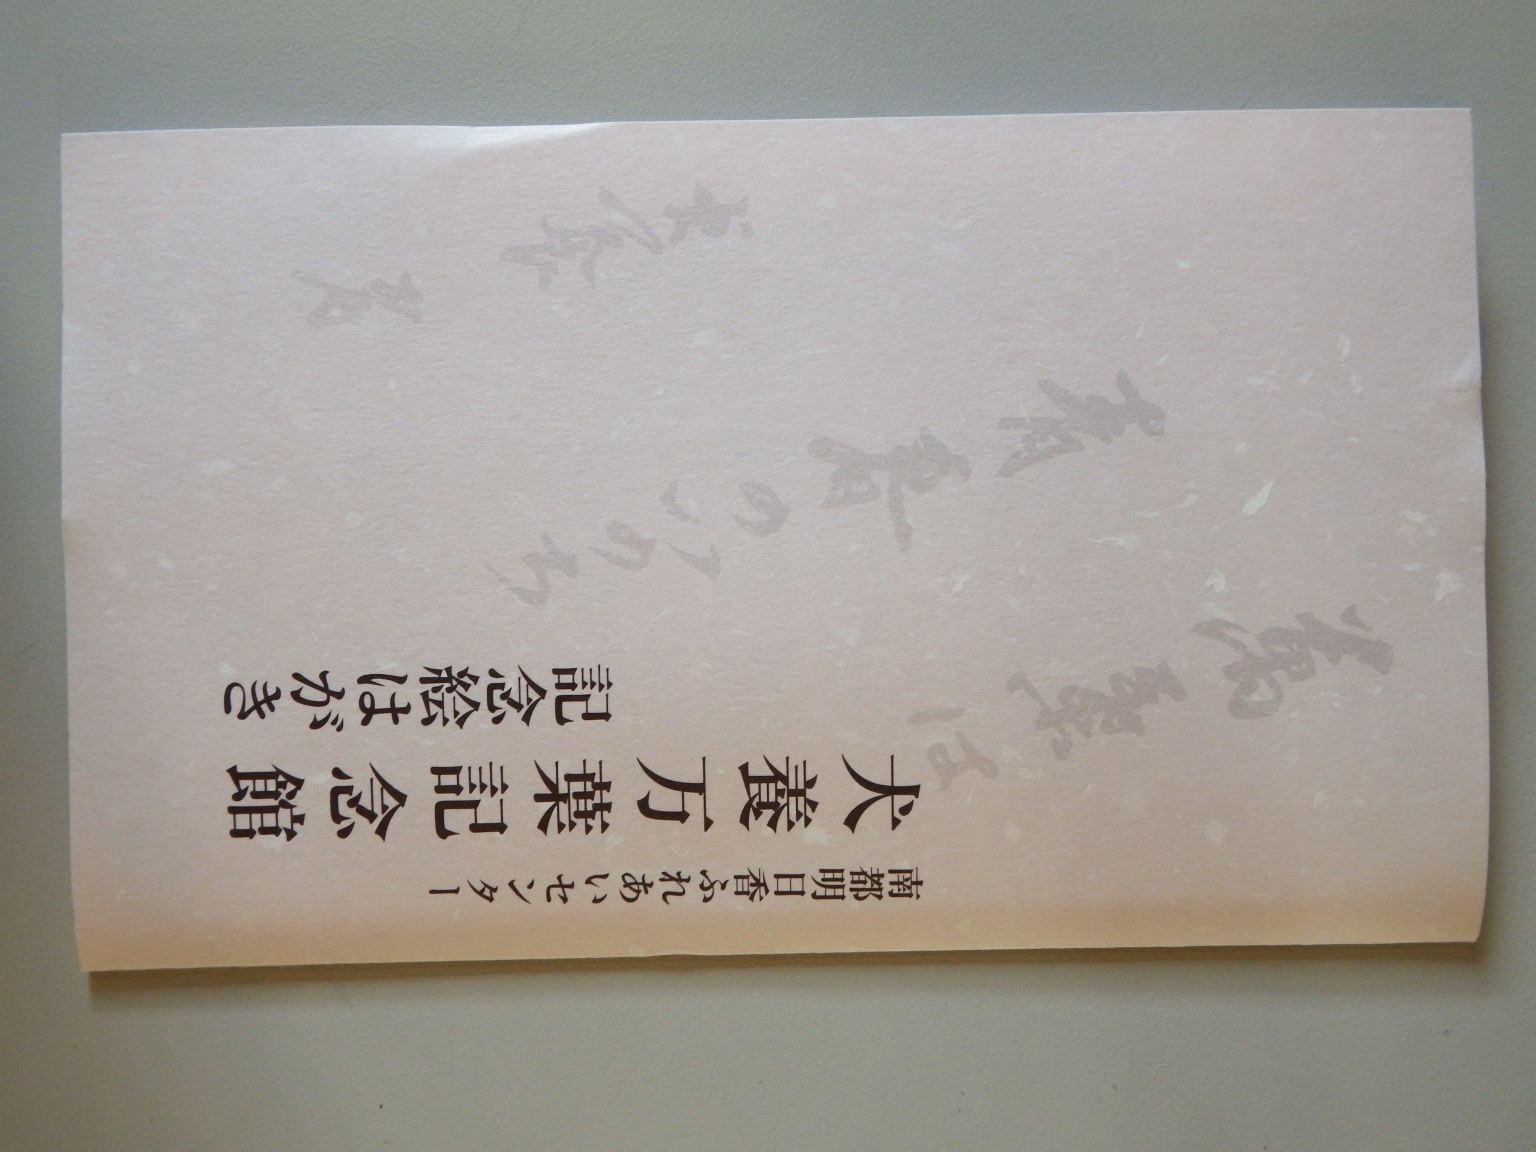 南都明日香ふれあいセンター
犬養万葉記念館
記念絵はがき
萬葉は
青春のいのち
犬養孝